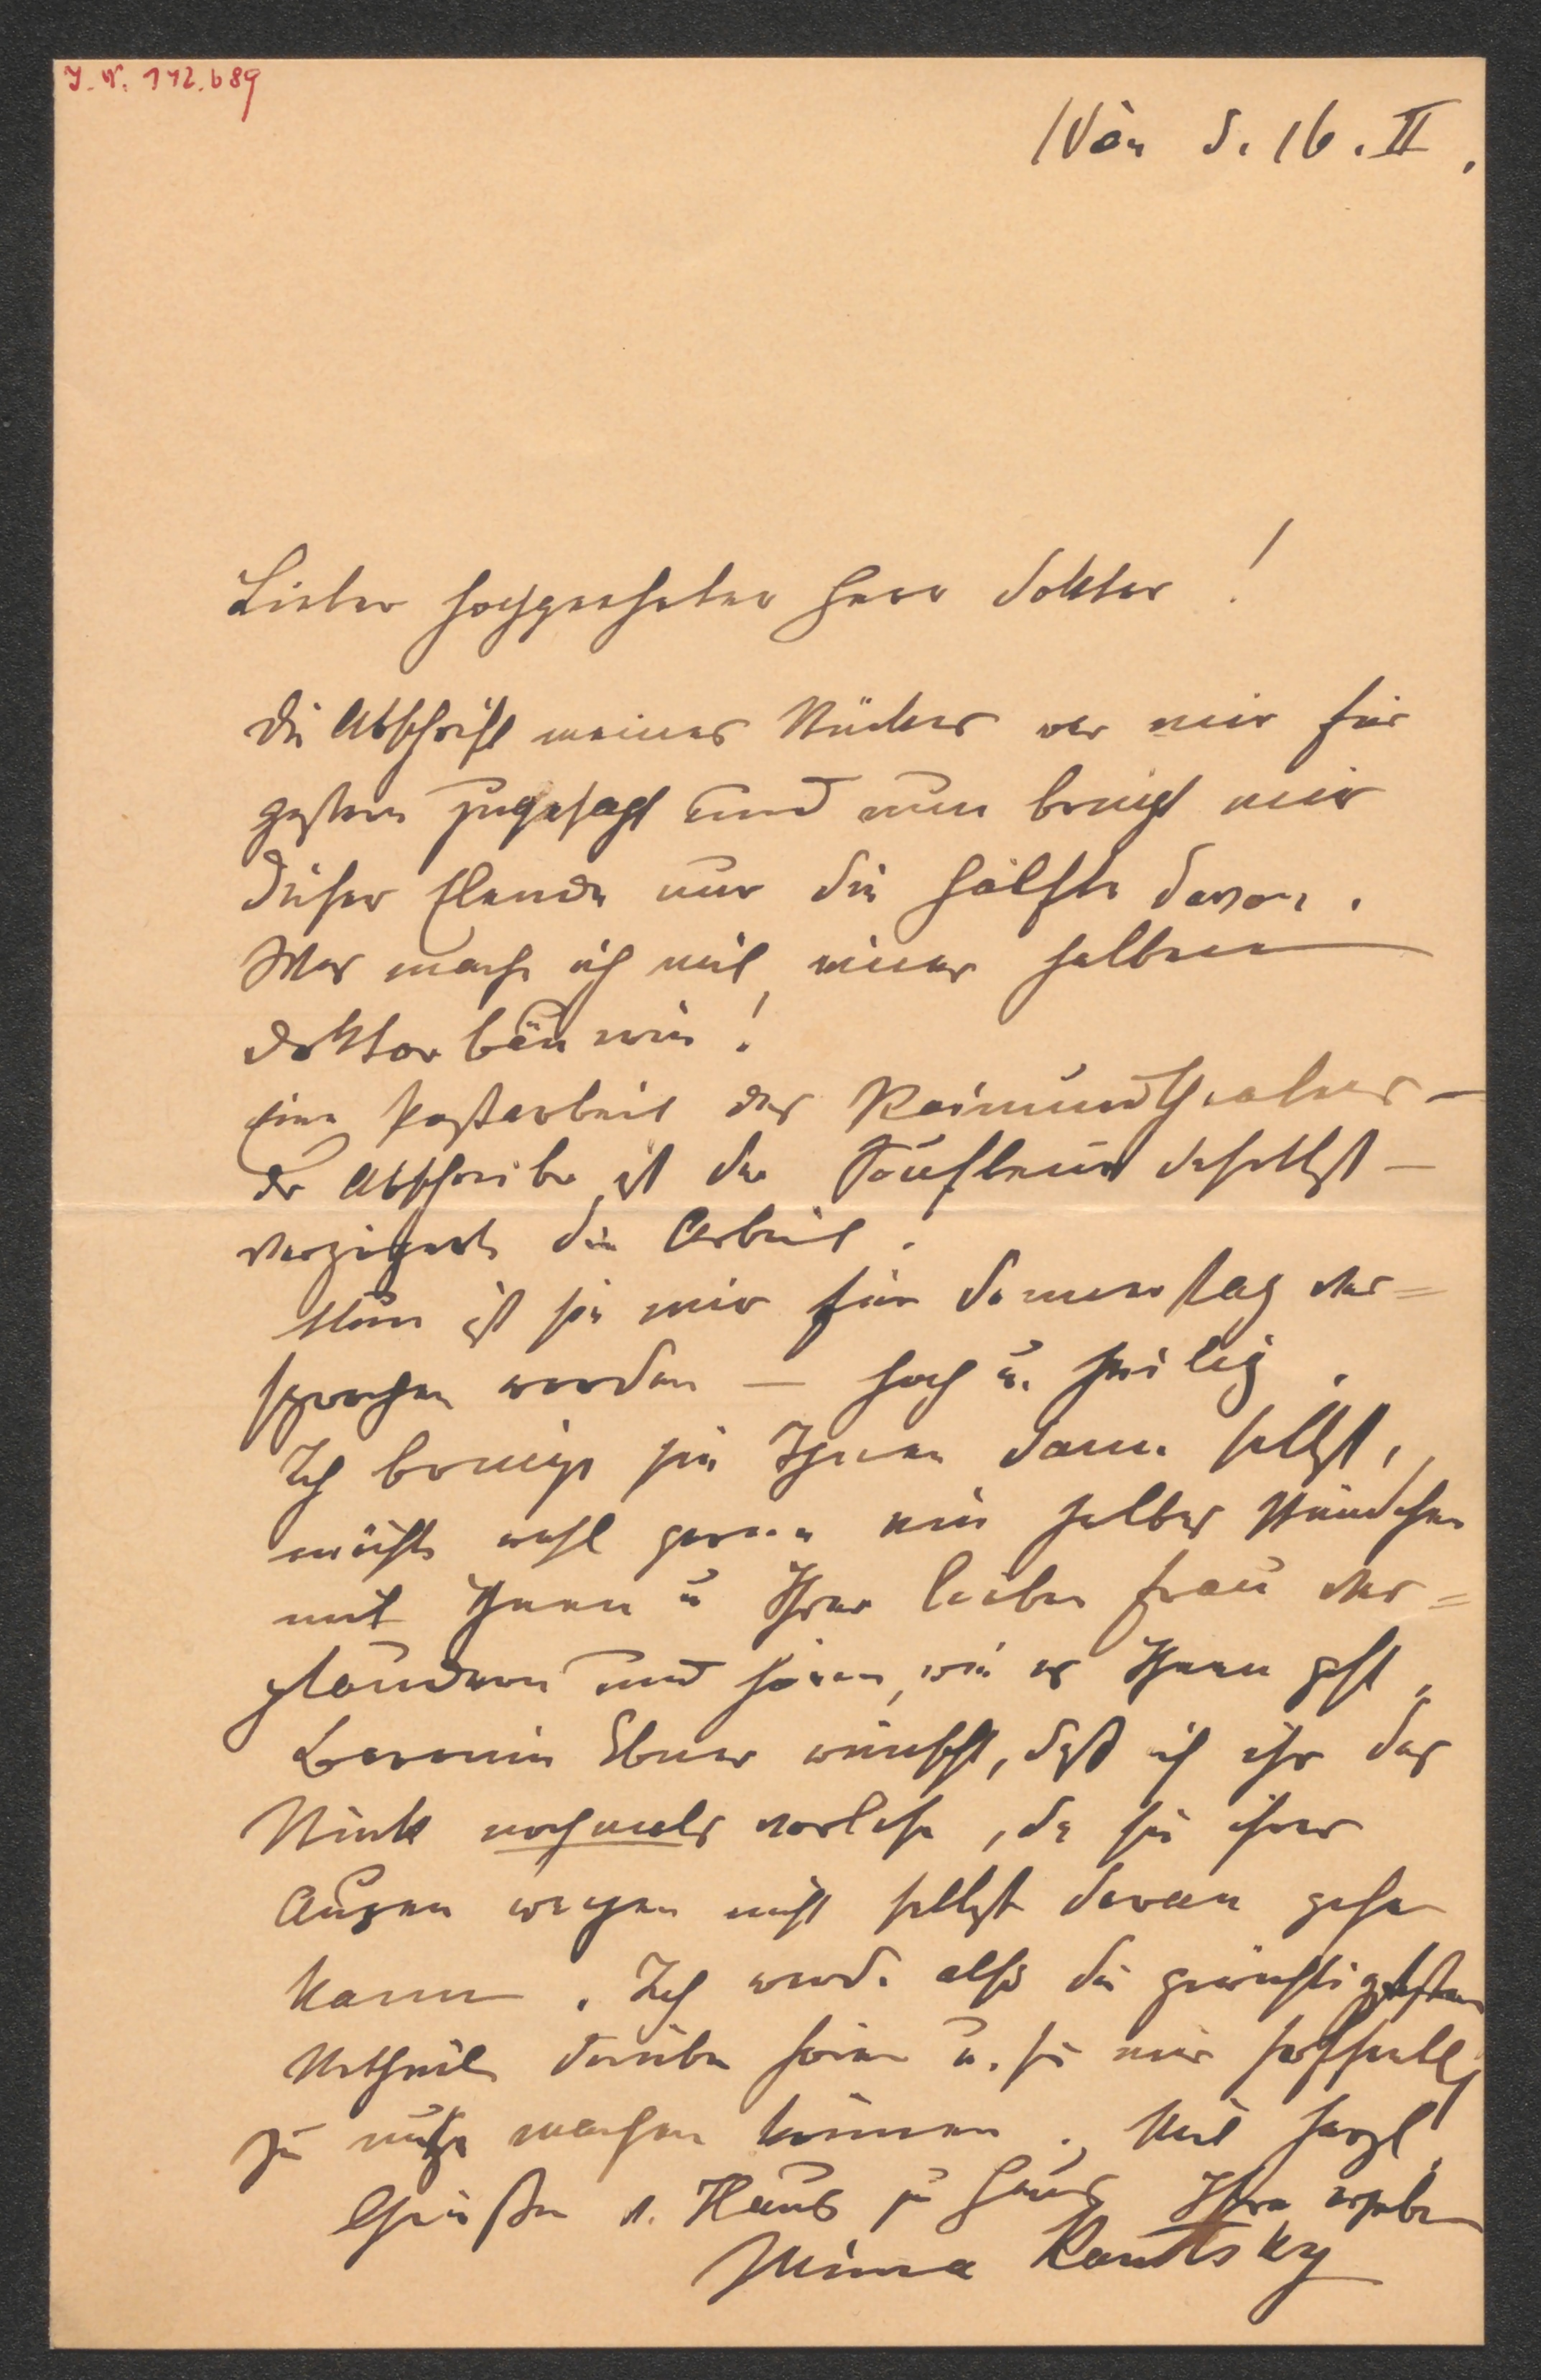 J. N. 142.689
Wien d. 16. II.
Lieber hochgeehrter Herr Doktor!
Die Abschrift meines Stückes war mir für
gestern zugesagt und nun bringt mir
dieser Elende nur die Hälfte davon.
Was mache ich mit einer halben
Doktorbäurin!
Eine Postarbeit des Raimundtheaters –
der Abschreiber ist der Soufleur daselbst –
verzögerte die Arbeit.
Nun ist sie mir für Donnerstag ver=
sprochen worden – hoch u. heilig.
Ich bringe sie Ihnen dann selbst,
möchte wohl gerne ein halbes Stündchen
mit Ihnen u Ihrer lieben Frau ver=
plaudern und hören, wie es Ihnen geht.
Baronin Ebner wünscht, daß ich ihr das
Stück nochmals vorlese, da sie ihrer
Augen wegen nicht selbst daran gehen
kann. Ich werde also die gewichtigsten
Urtheile darüber hören u. sie mir hoffentl.
zu nutze machen können. Mit herzl.
Grüßen v. Haus zu Haus Ihre ergebene
Minna Kautsky